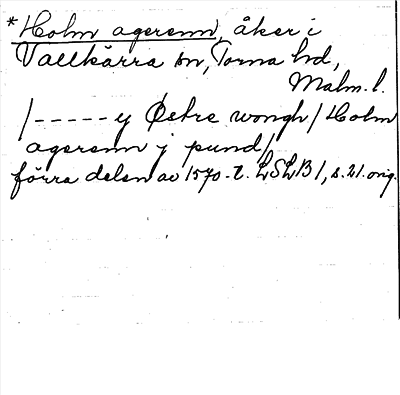 *Holm agerenn, åker i
Vallkärra sn, Torna hd,
Malm. l.
/-----y Østre wongh/Holm
agerenn j pund/
förra delen av 1570-t. LSLB 1, s. 21. orig.